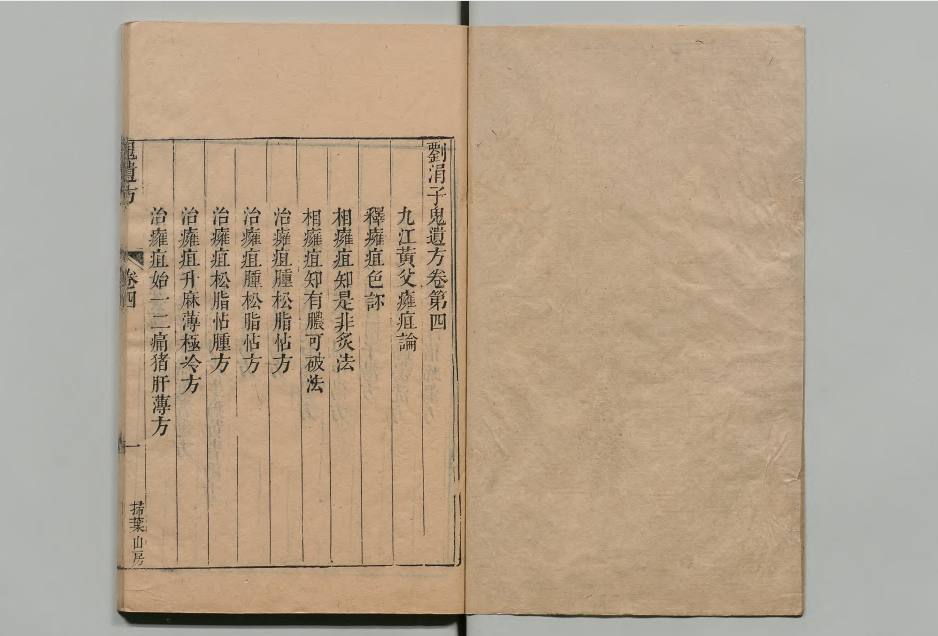 劉涓子鬼遺方卷第四
九江黃父癰疽論
釋癰疽色訡
相癰疽知是非炙法
相癰疽知有膿可破法
治癰疽腫松脂帖方
治癰疽腫松脂帖方
治癰疽松脂帖腫方
治癰疽升麻薄極冷方
治癰疽始一二痛猪肝薄方
鬼遺方
卷四
一
掃葉山房